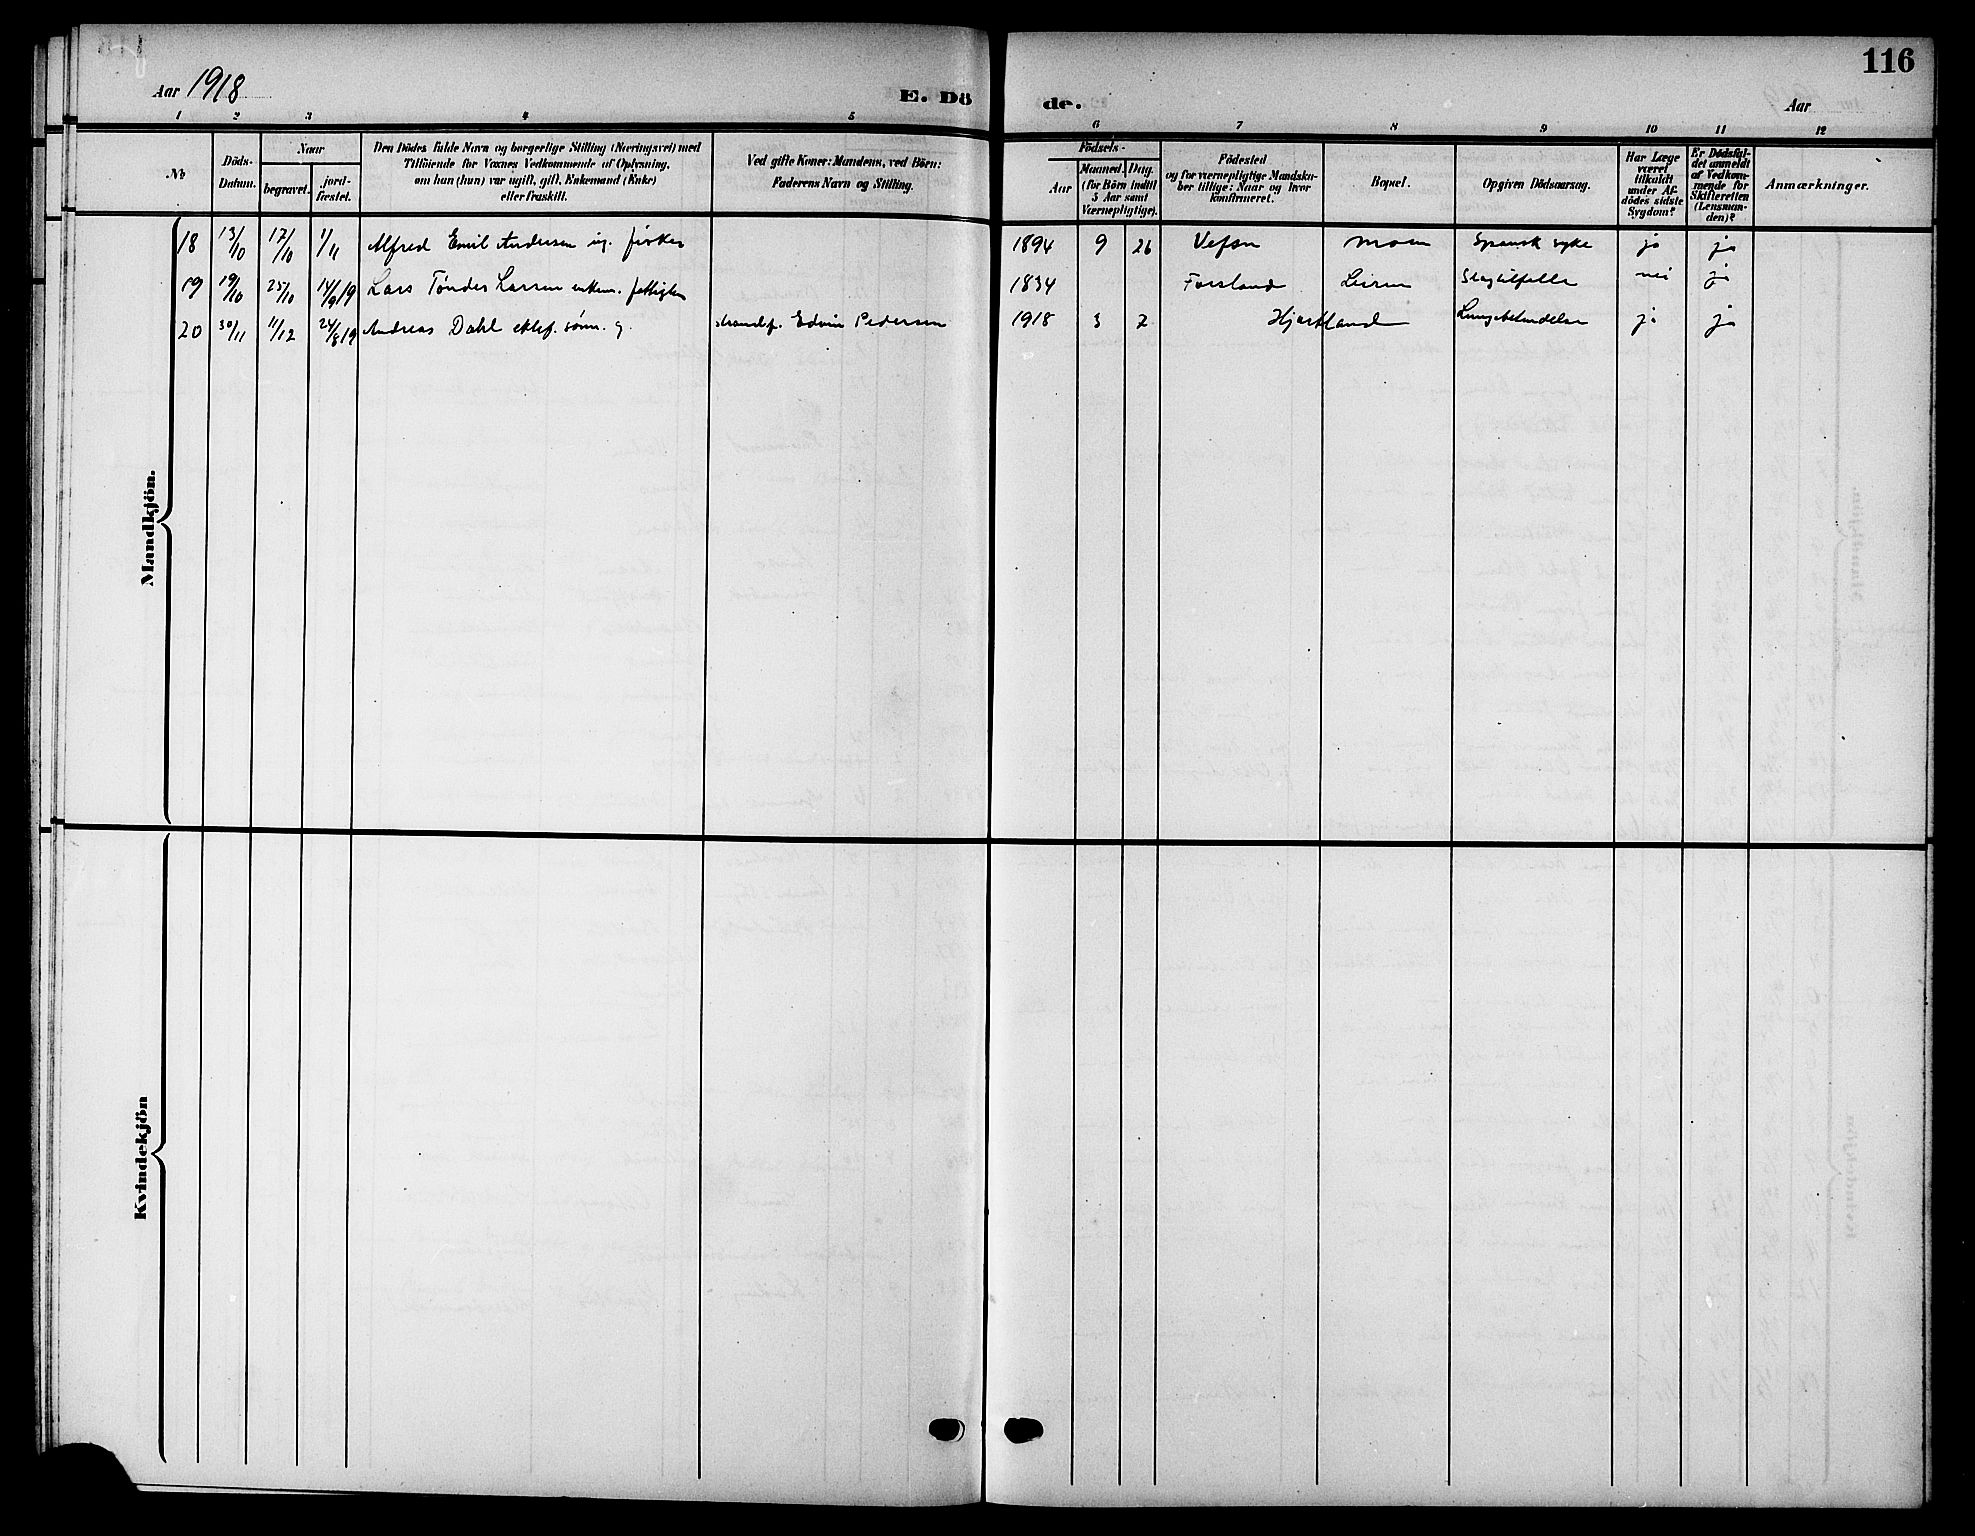 116
Aar 1918
E. Dö de.
Aar
1 2 3 4 5 6 7 8 9 10 11 12
No
Döds-
Datum.
Naar
begravet.
jord-
fæstet.
Den Dödes fulde Navn og borgerlige Stilling (Næringsvei) med
Tilföiende for Voxnes Vedkommende af Oplysning,
om han (hun) var ugift, gift, Enkemand (Enke)
eller fraskilt.
Ved gifte Koner: Mandens, ved Börn:
Faderens Navn og Stilling.
Födsels-
Aar
Maaned. Dag.
(for Börn indtil
5 Aar samt
Værnepligtige).
Födested
og for værnepligtige Mandska-
ber tillige: Naar og hvor
konfirmeret.
Bopæl.
Opgiven Dödsaarsag.
Har Læge
været
tilkaldt
under Af-
dödes sidste
Sygdom?
Er Dödsfal-
det anmeldt
af Vedkom-
mende for
Skifteretten
(Lensman-
den)?
Anmærkninger.
Mandkjön.
18 13/10 17/10 1/11 Alfred Emil Andersen ug. fisker 1894 9 26 Vefsn Moen Spansk syke ja ja
19 19/10 25/10 14/9 19 Lars Tönder Larsen enkem. 1834 Forsland Leiren Slagtilfelle nei ja
20 30/11 11/12 24/8 19 Andreas Dahl ektef. sönn. g. strands. Edvin Pedersen 1918 3 7 Hjartland Lungebetændelse ja ja
Kvindekjön